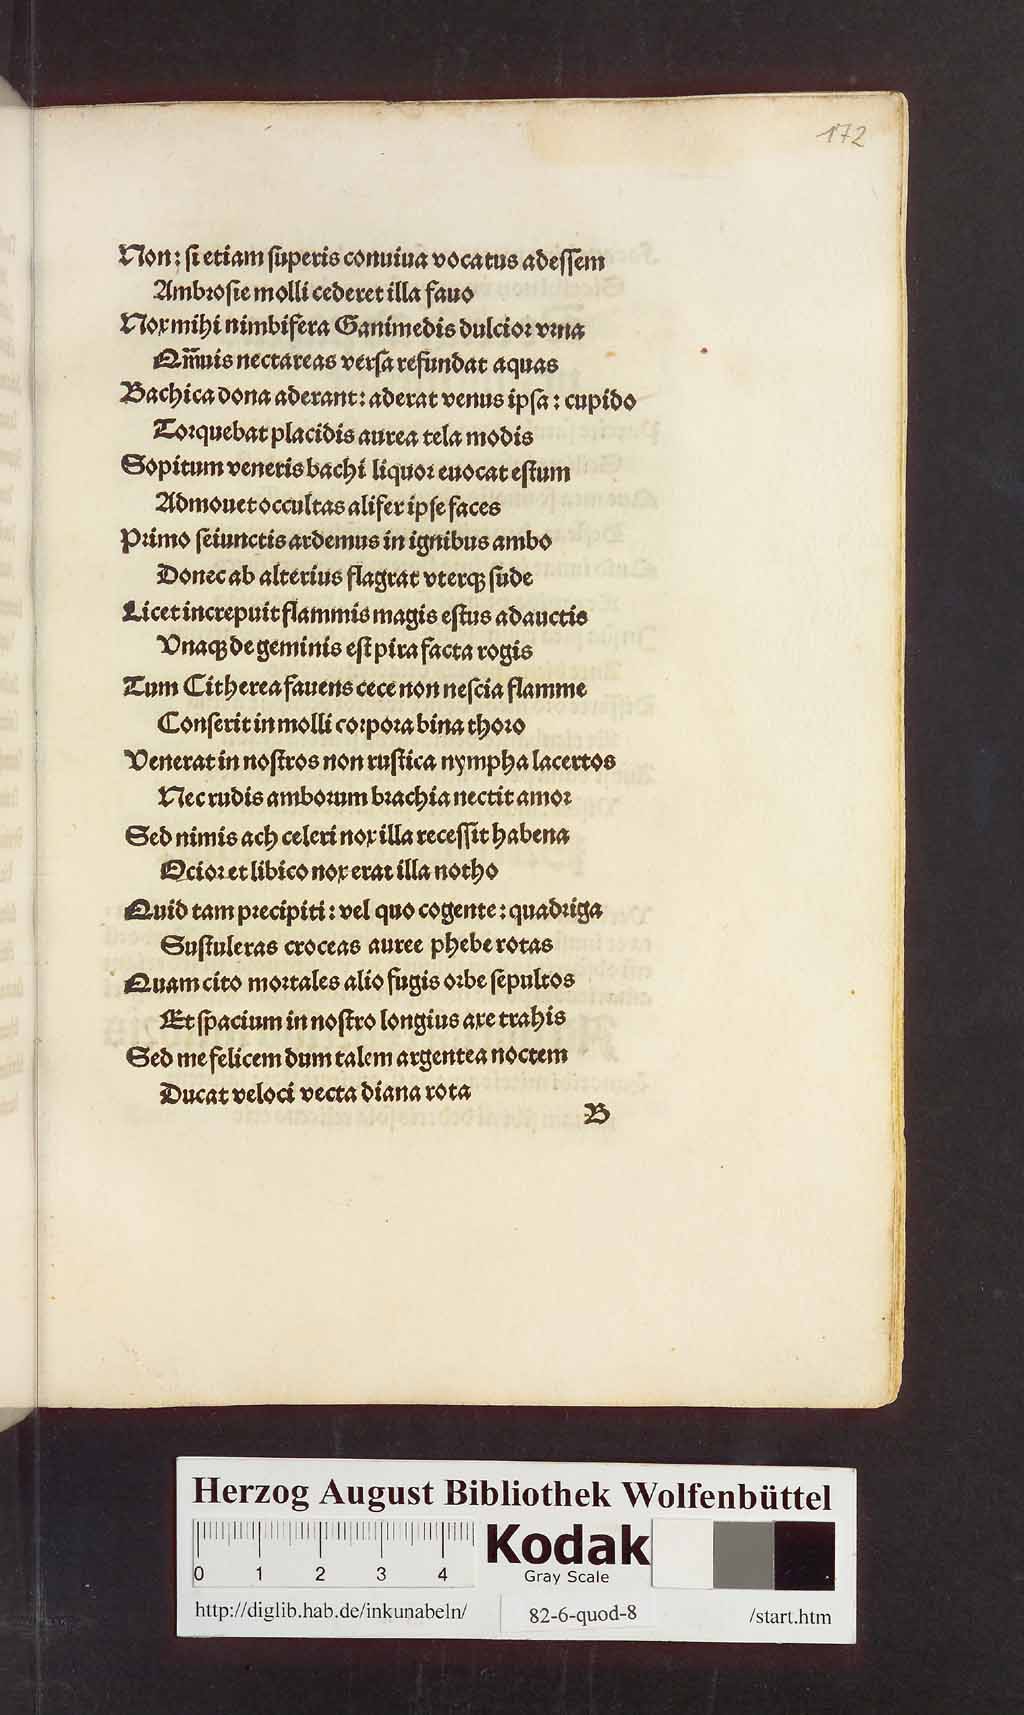 172
Non: ſi etiam ſuperis conuiua vocatus adeſſem
Ambroſie molli cederet illa fauo
Nox mihi nimbifera Ganimedis dulcior vrna
Qm̄uis nectareas verſa refundat aquas
Bachica dona aderant: aderat venus ipſa: cupido
Torquebat placidis aurea tela modis
Sopitum veneris bachi liquor euocat eſtum
Admouet occultas alifer ipſe faces
Primo ſeiunctis ardemus in ignibus ambo
Donec ab alterius flagrat vterqꝫ ſude
Licet increpuit flammis magis eſtus adauctis
Vnaqꝫ de geminis eſt pira facta rogis
Tum Citherea fauens cece non neſcia flamme
Conſerit in molli corpora bina thoro
Venerat in noſtros non ruſtica nympha lacertos
Nec rudis amborum brachia nectit amor
Sed nimis ach celeri nox illa receſſit habena
Ocior et libico nox erat illa notho
Quid tam precipiti: vel quo cogente: quadriga
Suſtuleras croceas auree phebe rotas
Quam cito mortales alio fugis orbe ſepultos
Et ſpacium in noſtro longius axe trahis
Sed me felicem dum talem argentea noctem
Ducat veloci vecta diana rota
B
Herzog August Bibliothek Wolfenbüttel
0 1 2 3 4
Kodak
Gray Scale
http://diglib.hab.de/inkunabeln/ 82-6-quod-8 /start.htm